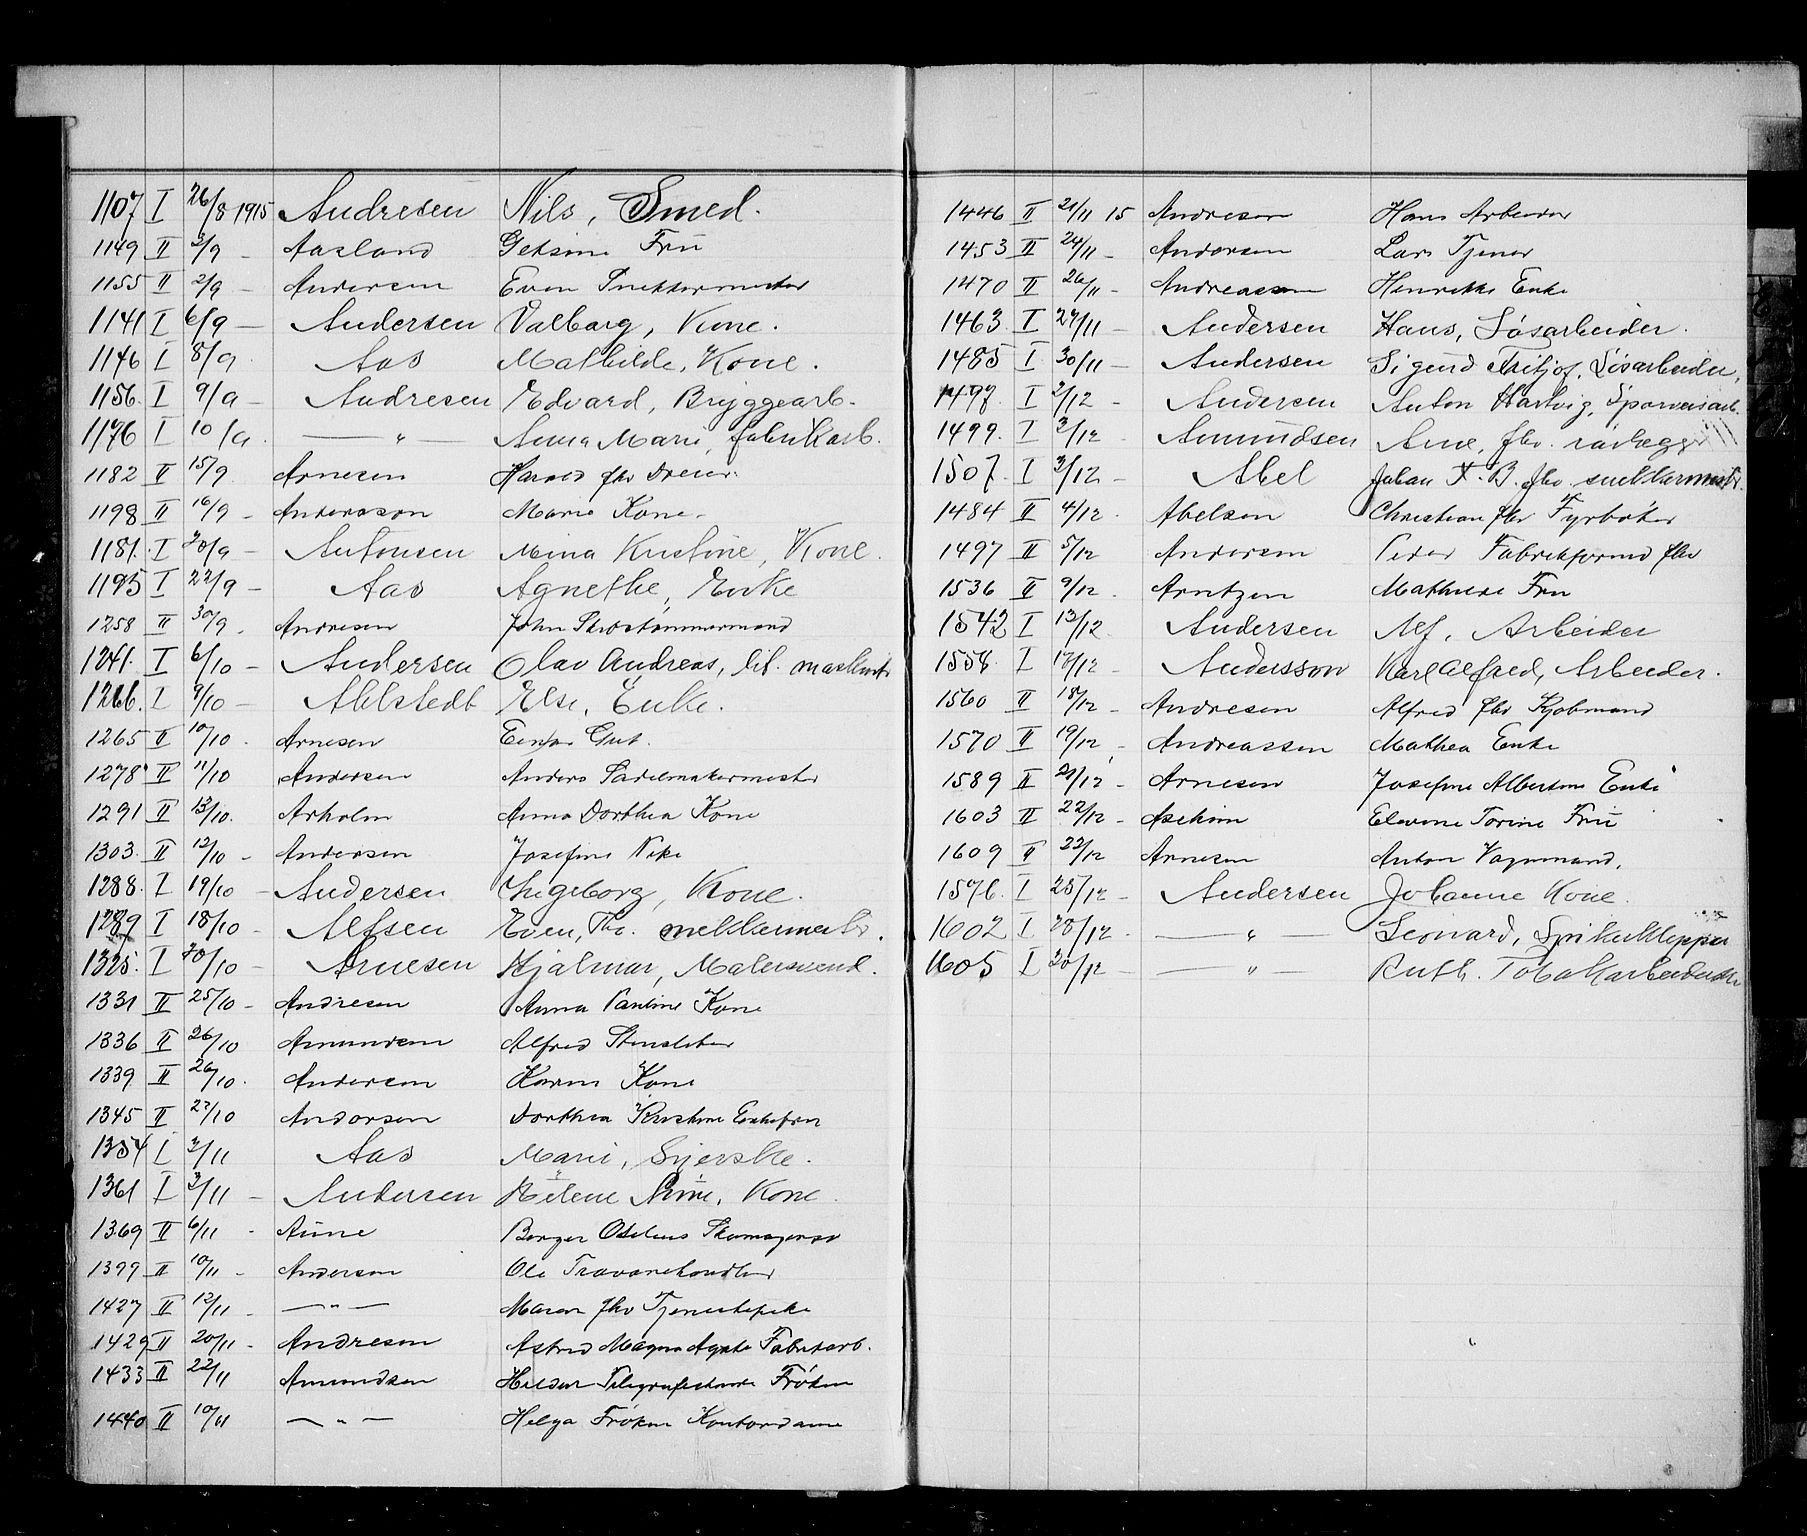 1107 I 26/8 1915 Andresen Nils, Smed.
1149 II 2/9 - Aasland Getsine Fru
1155 II 2/9 - Andersen Even Snekkermester
1141 I 6/9 — Andersen Valborg, Kone.
1146 I 8/9 Aas Mathilde, Kone.
1156. I 9/9 - Andresen Edvard, Bryggearb.
1176 I 10/9. — " — Anna Marie, fabrikarb.
1182 II 15/9 Arnesen Harald fhv Dreier.
1198 II 16/9 - Andersson Marie Kone.
1181. I 20/9 - Antonsen Mina Kristine, Kone.
1195 I 22/9 - Aas Agnethe, Enke
1258 II 30/9. Andresen John Skibstømmermand
1241. I 6/10 - Andersen Olav Andreas, maskinist
1266. I 9/10 - Ahlstedt Else, Enke.
1265 II 10/10. - Arnesen Einar Gut.
1278 II 11/10 Andersen Anders Sadelmakermester
1291 II 13/10. Arholm Anna Dorthea Kone
1303. II 12/10 - Andersen Josefine Pike
1288. I 19/10 - Andersen Ingeborg, Kone.
1289 I 18/10 - Alfsen Even, Th. snekkermester.
1325. I 20/10 - Arnesen Hjalmar, Malersvend.
1331 II 25/10 - Andresen Anna Pauline Kone
1336 II 26/10 Amundsen Alfred
1339 II 26/10. Andersen Karen Kone
1345 II 27/10 Andersen Dorthea Kristine Enkefru
1354 I 3/11 Aas Marie, Syerske.
1361 I 3/11 - Andersen Helene Kone.
1369 II 6/11 - Aune Berger Skomagersv
1399 II 10/11 - Andersen Ole Travarehandler
1427 II 12/11 - — " — Maren fhv Tjenestepike
1429 II 20/11 - Andresen Astrid Magna Agate Fabrikarb.
1433 II 22/11 Amundsen Hildur Telegrafistinde Frøken
1440 II 10/11 — " — Helga Frøken Kontordame
1446 II 21/11 15 Andresen Hans Arbeider
1453 II 24/11 - Andersen Lars Tjener
1470 II 26/11 - Andreassen Henrikke Enke
1463. I 27/11 — Andersen Hans, Løsarbeider.
1485 I. 30/11 — Andersen Sigurd Fritjof, Løsarbeider,
1497. I 2/12 - Andersen Anton Hartvig, Sporveisarb.
1499. I 3/12 - Amundsen Arne, fhv. rørlægger
1507. I 3/12 - Abel Johan F. B. fhv. snekkermstr.
1484 II 4/12. - Abelsen Christian fhv Fyrbøter
1497 II 5/12 Andersen Peder Fabrikformd fhv
1536 II 9/12. Arntzen Mathilde Fru
1542 I 13/12. Andersen Alf, Arbeider
1558. I 17/12 - Andersson Karl Alfred, Arbeider.
1560 II 18/12 - Andresen Alfred fhv Kjøbmand
1570 II 19/12 - Andreassen Mathea Enke
1589 II 21/12 - Arnesen Josefine Albertine Enke
1603 II 22/12 - Aschim Elevine Torine Fru
1609 II 22/12 Arnesen Anton Vognmand.
1576. I 25/12 - Andersen Johanne Kone.
1602 I 28/12. - — " — Leonard, Spikerklepper
1605 I 20/12 - — " — Ruth. Tobakkarbeiderske